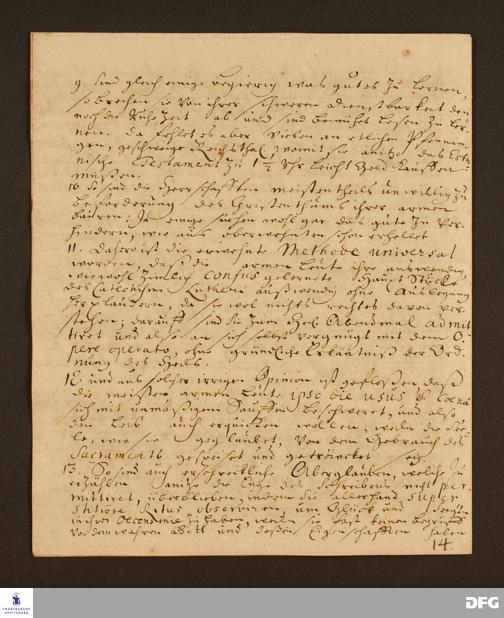 9. Sind gleich einige begierig was gutes zu lernen,
so brechen sie von ihrer schweren Dienstbarkeit den
noch die Ruhe Zeit ab und sind bemühet lesen zu ler-
nen. Da fehlet es aber vielen an etlichen Pfennin-
gen, geschweige Reichsthal, womit sie anitzo das Esth-
nische Testament zu 1 1/2 leicht Geld kauffen
müssen.
10. So sind die Herrschafften meistentheils unwillig zu
beforderung des Christenthums ihrer armen
Bauren: Ja einige suchen wohl gar das gute zu ver-
hindern, wie aus oberwehnten schon erhellet
11. Daher ist die erwehnte Methode universal
worden, daß die armen Leute ihre auswendig,
wiewohl zimlich confus gelernete Haupt Stücke
des Catechismi Lutheri außwendig ohne Außlegung
her plaudern, da sie wol nichts rechtes davon ver-
stehen; darauff sind sie zum Heil. Abendmal admit-
tiret und also an sich selbst vergnügt mit dem O-
pere operato, ohne gründliche Erkäntniß der Ord-
nung des Heils.
12. und aus solcher irrigen Opinion ist geflossen daß
die meisten armen Leute ipso die usus S. Coenae
sich mit unmäßigem Sauffen beschweret, und also
den Leib auch erquicken wollen, weiln die See-
le, wie sie geglaubet, von dem Gebrauch des
Sacraments gespeiset und getröncket sey.
13. So sind auch erschreckliche Aberglauben, welche zu
erzählen anitzo die Enge des Schreibens nicht per-
mittiret, überblieben, indem sie allerhand super-
stitiöse Ritus observiren um Glück und Seegen
in ihrer Oeconomie zu haben, weiln sie fast keinen begriff
von dem wahren Gott und deßen Eigenschafften haben
14.
FRANCKESCHE
STIFTUNGEN
DFG